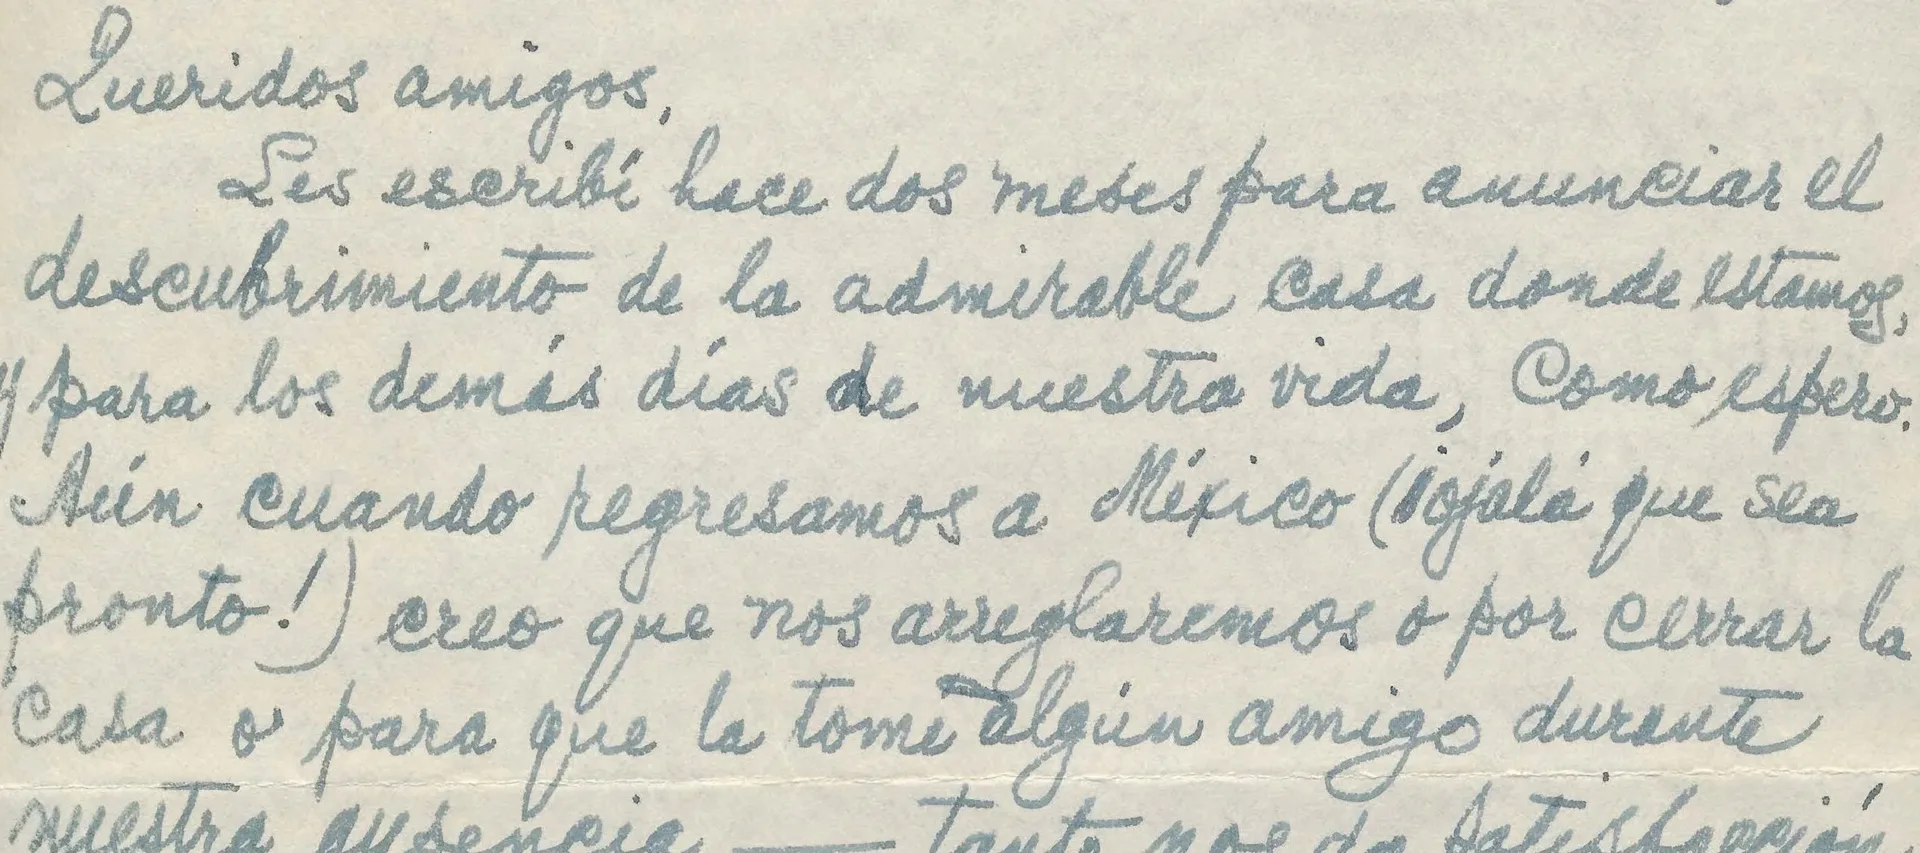 Queridos amigos,
Les escribí hace dos meses para anunciar el
descubrimiento de la admirable casa donde estamos,
y para los demás días de nuestra vida, como espero.
Aún cuando regresamos a México (¡ojalá que sea
pronto!) creo que nos arreglaremos o por cerrar la
casa o para que la tome algún amigo durante
nuestra ausencia — tanta nos da satisfacción